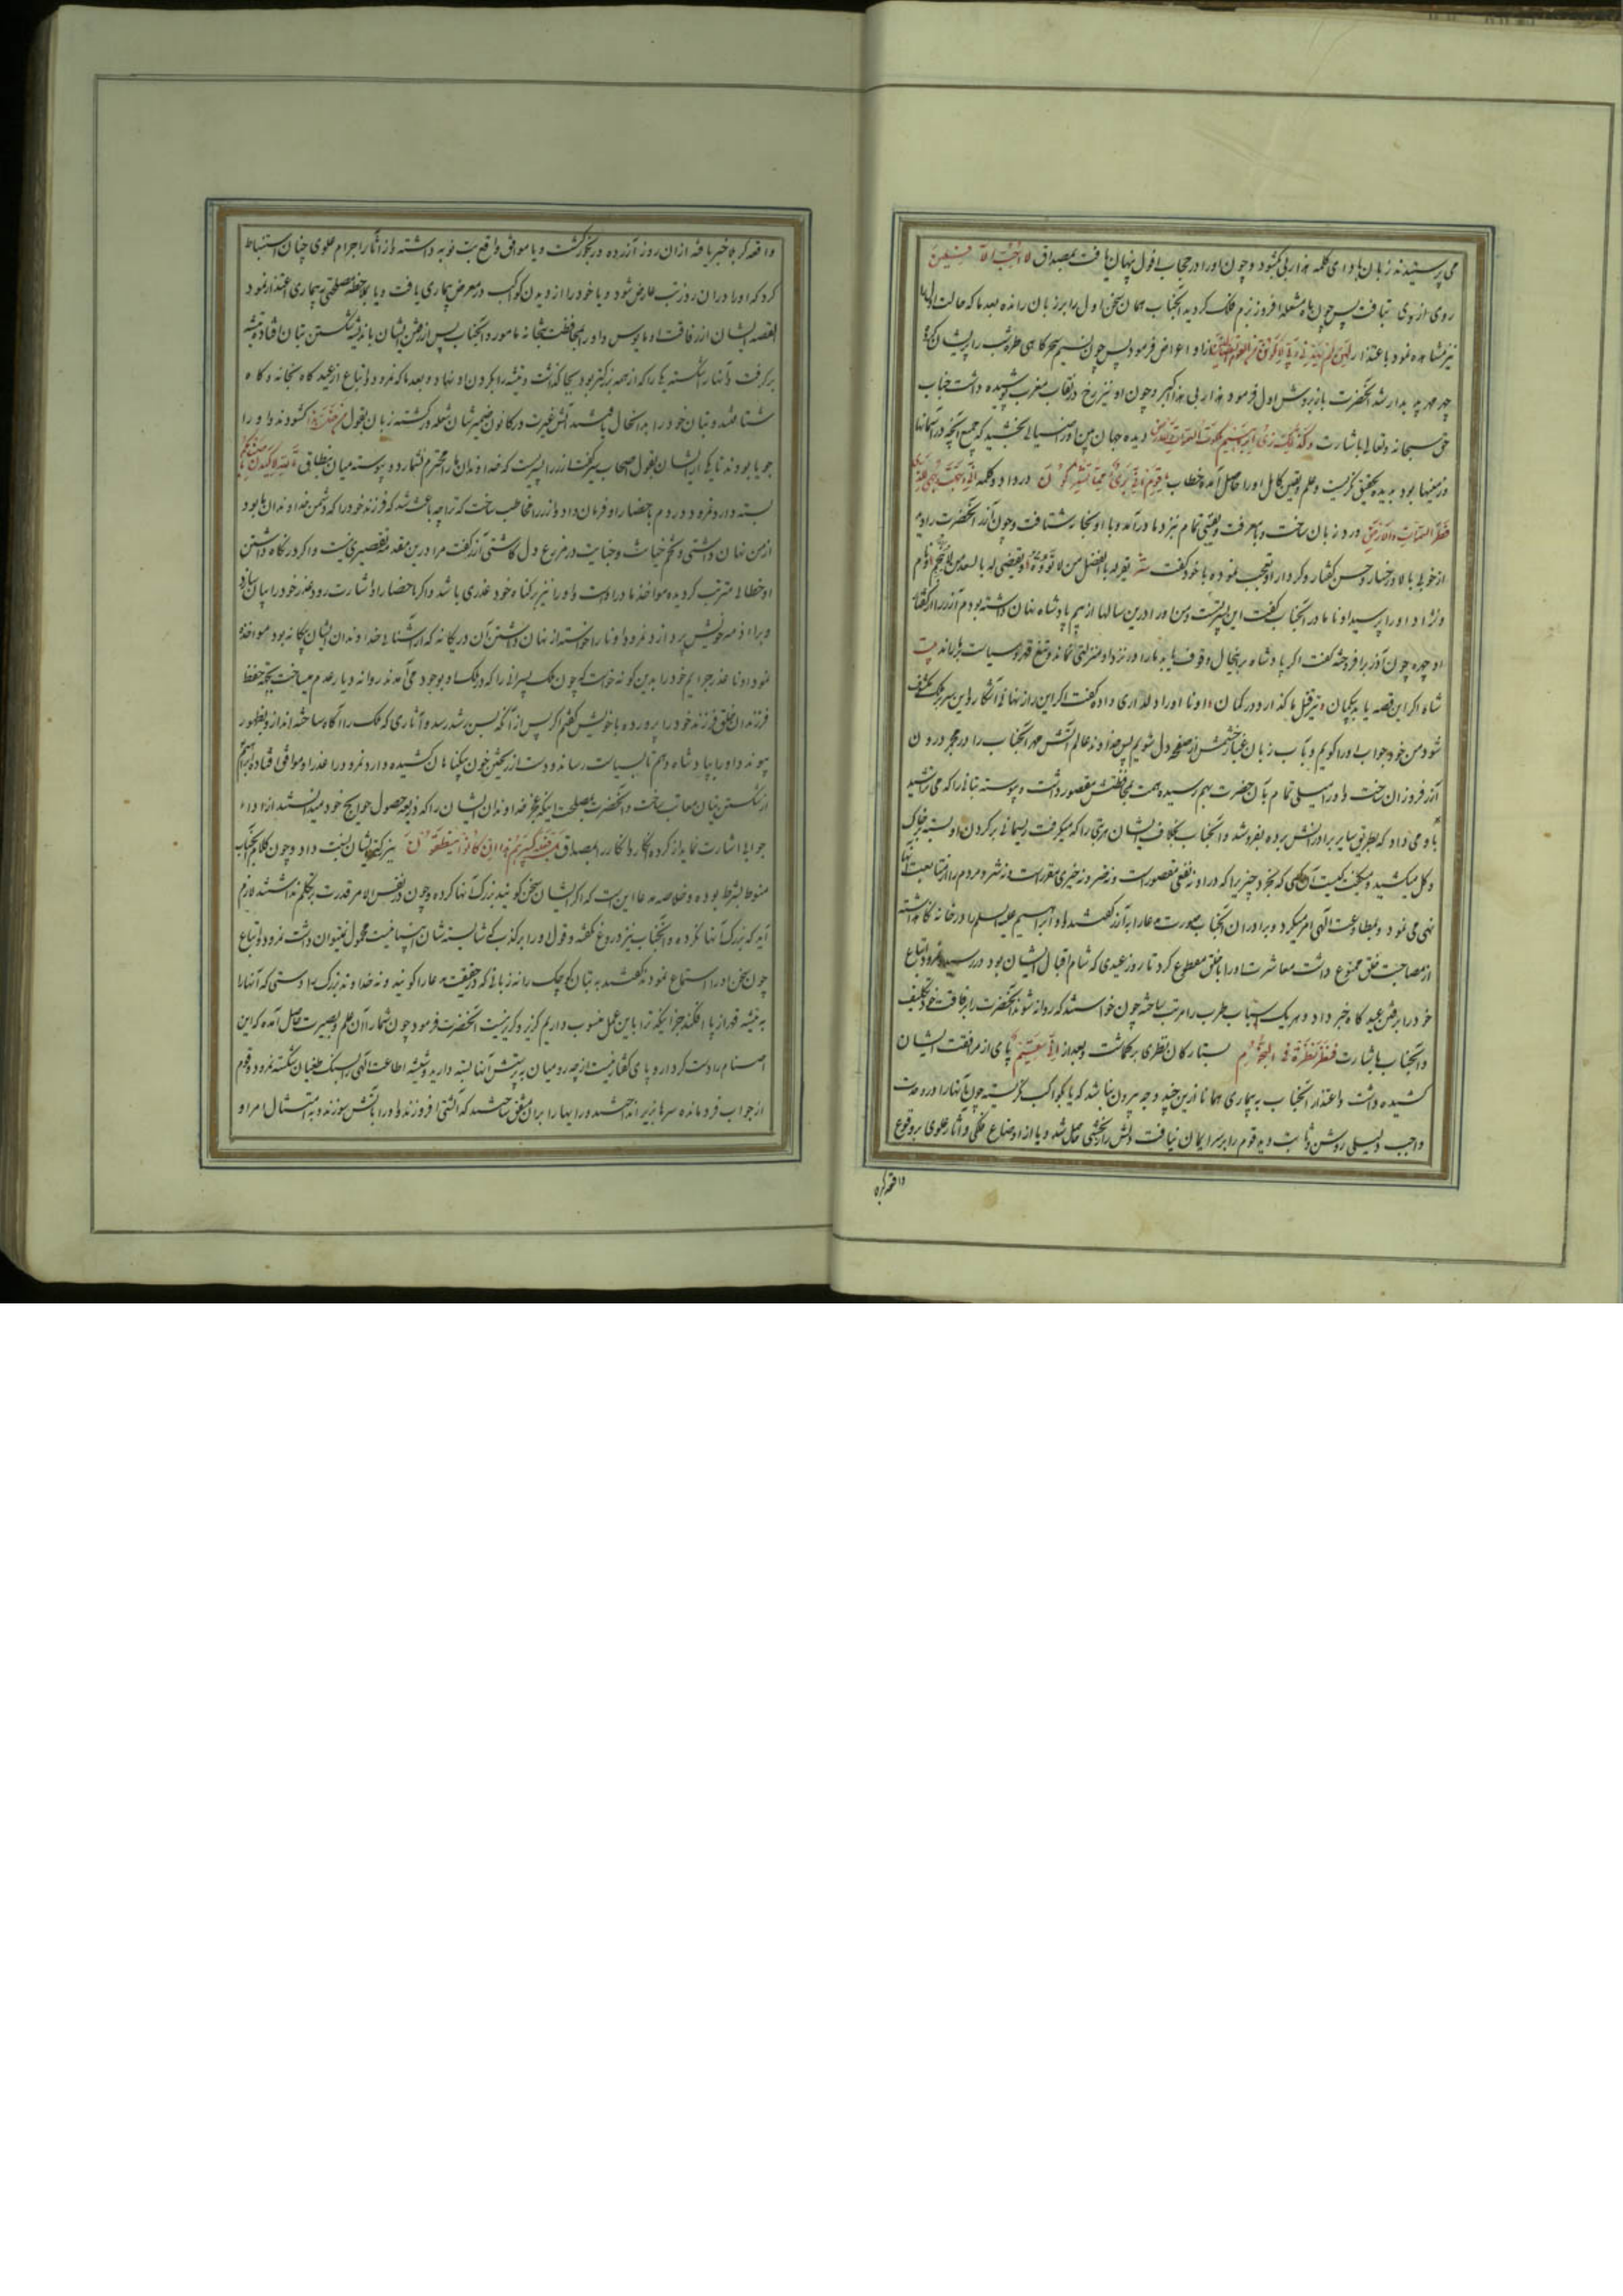 می پرستیدند زبان بادای کلمه هذا ربی کشود و چون او را در حجاب افول پنهان یافت بمصداق لا احب الآفلین
روی از وی بتافت پس چون ماه مشعله افروز بزم فلک کردید آنجناب همان سخن اول را بر زبان رانده بعد ما که حالت
نیز مشاهده نمود باعتذار لئن لم یهدنی ربی لاکونن من القوم الضالین از او اعراض فرمود پس چون نسیم سحرکاهی طره شب را پریشان کرد
چهر مهر پدیدار شد آنحضرت باز بروش اول فرمود هذا ربی هذا اکبر و چون او نیز رخ در نقاب مغرب پوشیده داشت جناب
حق سبحانه و تعالی باشارت وکذلک نری ابراهیم ملکوت السموات دیده جهان بین او را ضیائی بخشید که جمیع آنچه در آسمانها
و زمینها بود بدیده تحقیق نکریست و علم و یقین کامل او را حاصل آمده خطاب یا قوم انی بری مما تشرکون در داد و کلمه انی وجهت وجهی للذی
فطر السموات والارض ورد زبان ساخت و با معرفت و یقینی تمام نزد مادر آمد و با او بخانه شتافت و چون آزر آنحضرت را دید
از خوبی بالا و رخسار و حسن کفتار و کردار او تعجب نموده با خود کفت
و نژاد او را پرسید اونا مادر آنجناب کفت این پسر تست و من او را درین سالها از بیم پادشاه نهان داشته بودم آزر را از کفتار
او چهره چون آذر برافروخته کفت اکر پادشاه بر این حال وقوف یابد ما را در نزد او منزلتی نماند و بتیغ قهر و سیاست
شاه اکر این قصه یابد بیکمان تیر قتل ما کذارد در کمان اونا او را دلداری داده کفت اکر این راز نهانی آشکار و این سر بر ملک مکشوف
شود من خود جواب او را کویم و بآب زبان غبار خشمش از صفحه دل شویم پس خداوند عالم آتش مهر آنجناب را در مجمر درون
آزر فروزان ساخت و او را میلی تمام بآن حضرت بهم رسیده همت بمحافظتش مقصور داشت و پیوسته بتانی را که می تراشید
باو می داد که بطریق سایر برادرانش برده بفروشد و آنجناب بخلاف ایشان هر بتی را که میکرفت ریسمانی بر کردن او بسته بر خاک
و کل میکشید و میکفت کیست آن کسی که بخرد چیزیرا که در او نه نفعی مقصور است و نه ضرر و نه خیری متصور است و نه شر و مردم را از متابعت آنها
نهی می نمود و بمطاوعت الهی امر میکرد و برادران آنجناب صورت مدعا را به آزر کفتند و او ابراهیم علیه السلم را در خانه نکاه داشته
از مصاحبت خلق ممنوع داشت معاشرت او را با خلق مقطوع کرد تا روز عیدی که شام اقبال ایشان بود در رسید و نمرود اتباع
خود را برفتن عیدکاه خبر داد و هر یک اسباب طرب را مرتب ساخته چون خواستند که روانه شوند آنحضرت را برفاقت خود تکلیف
و آنجناب باشارت فنظر نظرة فی النجوم بستارکان نظری بر کماشت و بعد از انی سقیم پای از مرافقت ایشان
کشیده داشت و اعتذار آنجناب به بیماری همانا ازین چند وجه بیرون نباشد که یا بکواکب نکریسته چون آنها را در وحدت
واجب دلیلی روشن و ثابت دید قوم را بر سر ایمان نیافت دلش را رنجشی حاصل شد و یا از اوضاع فلکی و آثار علوی بر وقوع
واقعه کربلا
واقعه کربلا خبر یافته ازان روز آزرده و رنجور کشت و یا موافق واقع تب نوبه داشته و از آثار اجرام علوی چنان استنباط
کرد که او را دران روز تب عارض شود و یا خود را از دیدن کوکب در معرض بیماری یافت و یا بملاحظه مصلحتی به بیماری اعتذار نمود
القصه ایشان از رفاقت او مایوس و او را بمحافظت بتخانه مامور و آنجناب پس از رفتن ایشان باندیشه شکستن بتان افتاده تیشه
برکرفت و آنها را شکسته یکی را که از همه بزرکتر بود بجا کذاشت و تیشه را بکردن او نهاد و بعد ما که نمرود و اتباع از عیدکاه به بتخانه و کاه
شتافتند و بتان خود را بدانحال یافتند آتش غیرت در کانون ضمیرشان شعله ور کشته زبان بقول من فعل هذا کشودند و او را
جویا بودند تا یکی از ایشان بقول اصحاب سیر کفت آزر را پسریست که خداوندان ما را محترم نشمارد و پیوسته میان بنطاق تالله لاکیدن اصنامکم
بسته دارد نمرود مردم باحضار او فرمان داد و آزر را مخاطب ساخت که ترا چه باعث شد که فرزند خود را که دشمن خداوندان ما بود
از من نهان داشتی و تخم خیانت و جنایت در مزرع دل کاشتی آزر کفت مرا درین مقدمه تقصیری نیست و اکر در نکاه داشتن
او خطائی مترتب کردیده مواخذ مادر اوست و او را نیز بر کناه خود عذری باشد و اکر باحضار او اشارت رود عذر خود را بیان سازد
و برائت ذمه خویش پردازد نمرود اونا را خواسته از نهان داشتن آن دریکانه که از آشنائی خداوندان ایشان بیکانه بود مواخذه
نمود اونا عذر جرایم خود را بدین کونه خواست که چون ملک پسرانی را که در ملک او بوجود می آمدند روانه دیار عدم میساخت بجهة حفظ
فرزندان خلق فرزند خود را پرورده با خویش کفتم اکر پس از آنکه بسن رشد رسد و آثاری که ملک را آکاه ساخته اند از او بظهور
پیوندد او را بپادشاه دهم تا بسیاست رساند و دست از ریختن خون بیکناهان کشیده دارد نمرود را عذر او موافق افتاد و ابراهیم
از شکستن بتان معاتب ساخت و آنحضرت بمصلحت اینکه عجز خداوندان ایشان را که ذریعه حصول حوایج خود میدانستند از ادای
جوابی اشارت نماید از کرده انکار و انکار را بمصداق بل فعله کبیرهم هذا ان کانوا ینطقون ببزرک ایشان نسبت داد و چون کلام آنجناب
منوط بشرط بوده و خلاصه مدعا این است که اکر ایشان سخن کویند بزرک آنها کرده و چون در نفس الامر قدرت بر تکلم نداشتند لازم
آید که بزرک آنها نکرده و آنجناب نیز دروغ نکفته و قول او را بر کذب که شایسته شان انبیا نیست محمول نمیتوان داشت نمرود و اتباع
چون سخن او را استماع نمودند کفتند به بتان کوچک را نه زبانی که در حقیقت مدعا را کویند و نه خداوند بزرک را دستی که آنها را
به تیشه قهر از پا افکند جز اینکه ترا باین عمل منسوب داریم کزیر و کریز نیست آنحضرت فرمود چون شما را آن علم و بصیرت حاصل آمده که این
اصنام را دست کردار و پای کفتار نیست از چه رو میان به پرستش آنها بسته دارید و شیشه اطاعت الهی را بسنک طغیان شکسته نمرود و قوم
از جواب فرومانده سرها بزیر انداختند و رایها را بدان متفق ساختند که آتشی افروزند و او را بآتش سوزند و بامتثال امر او